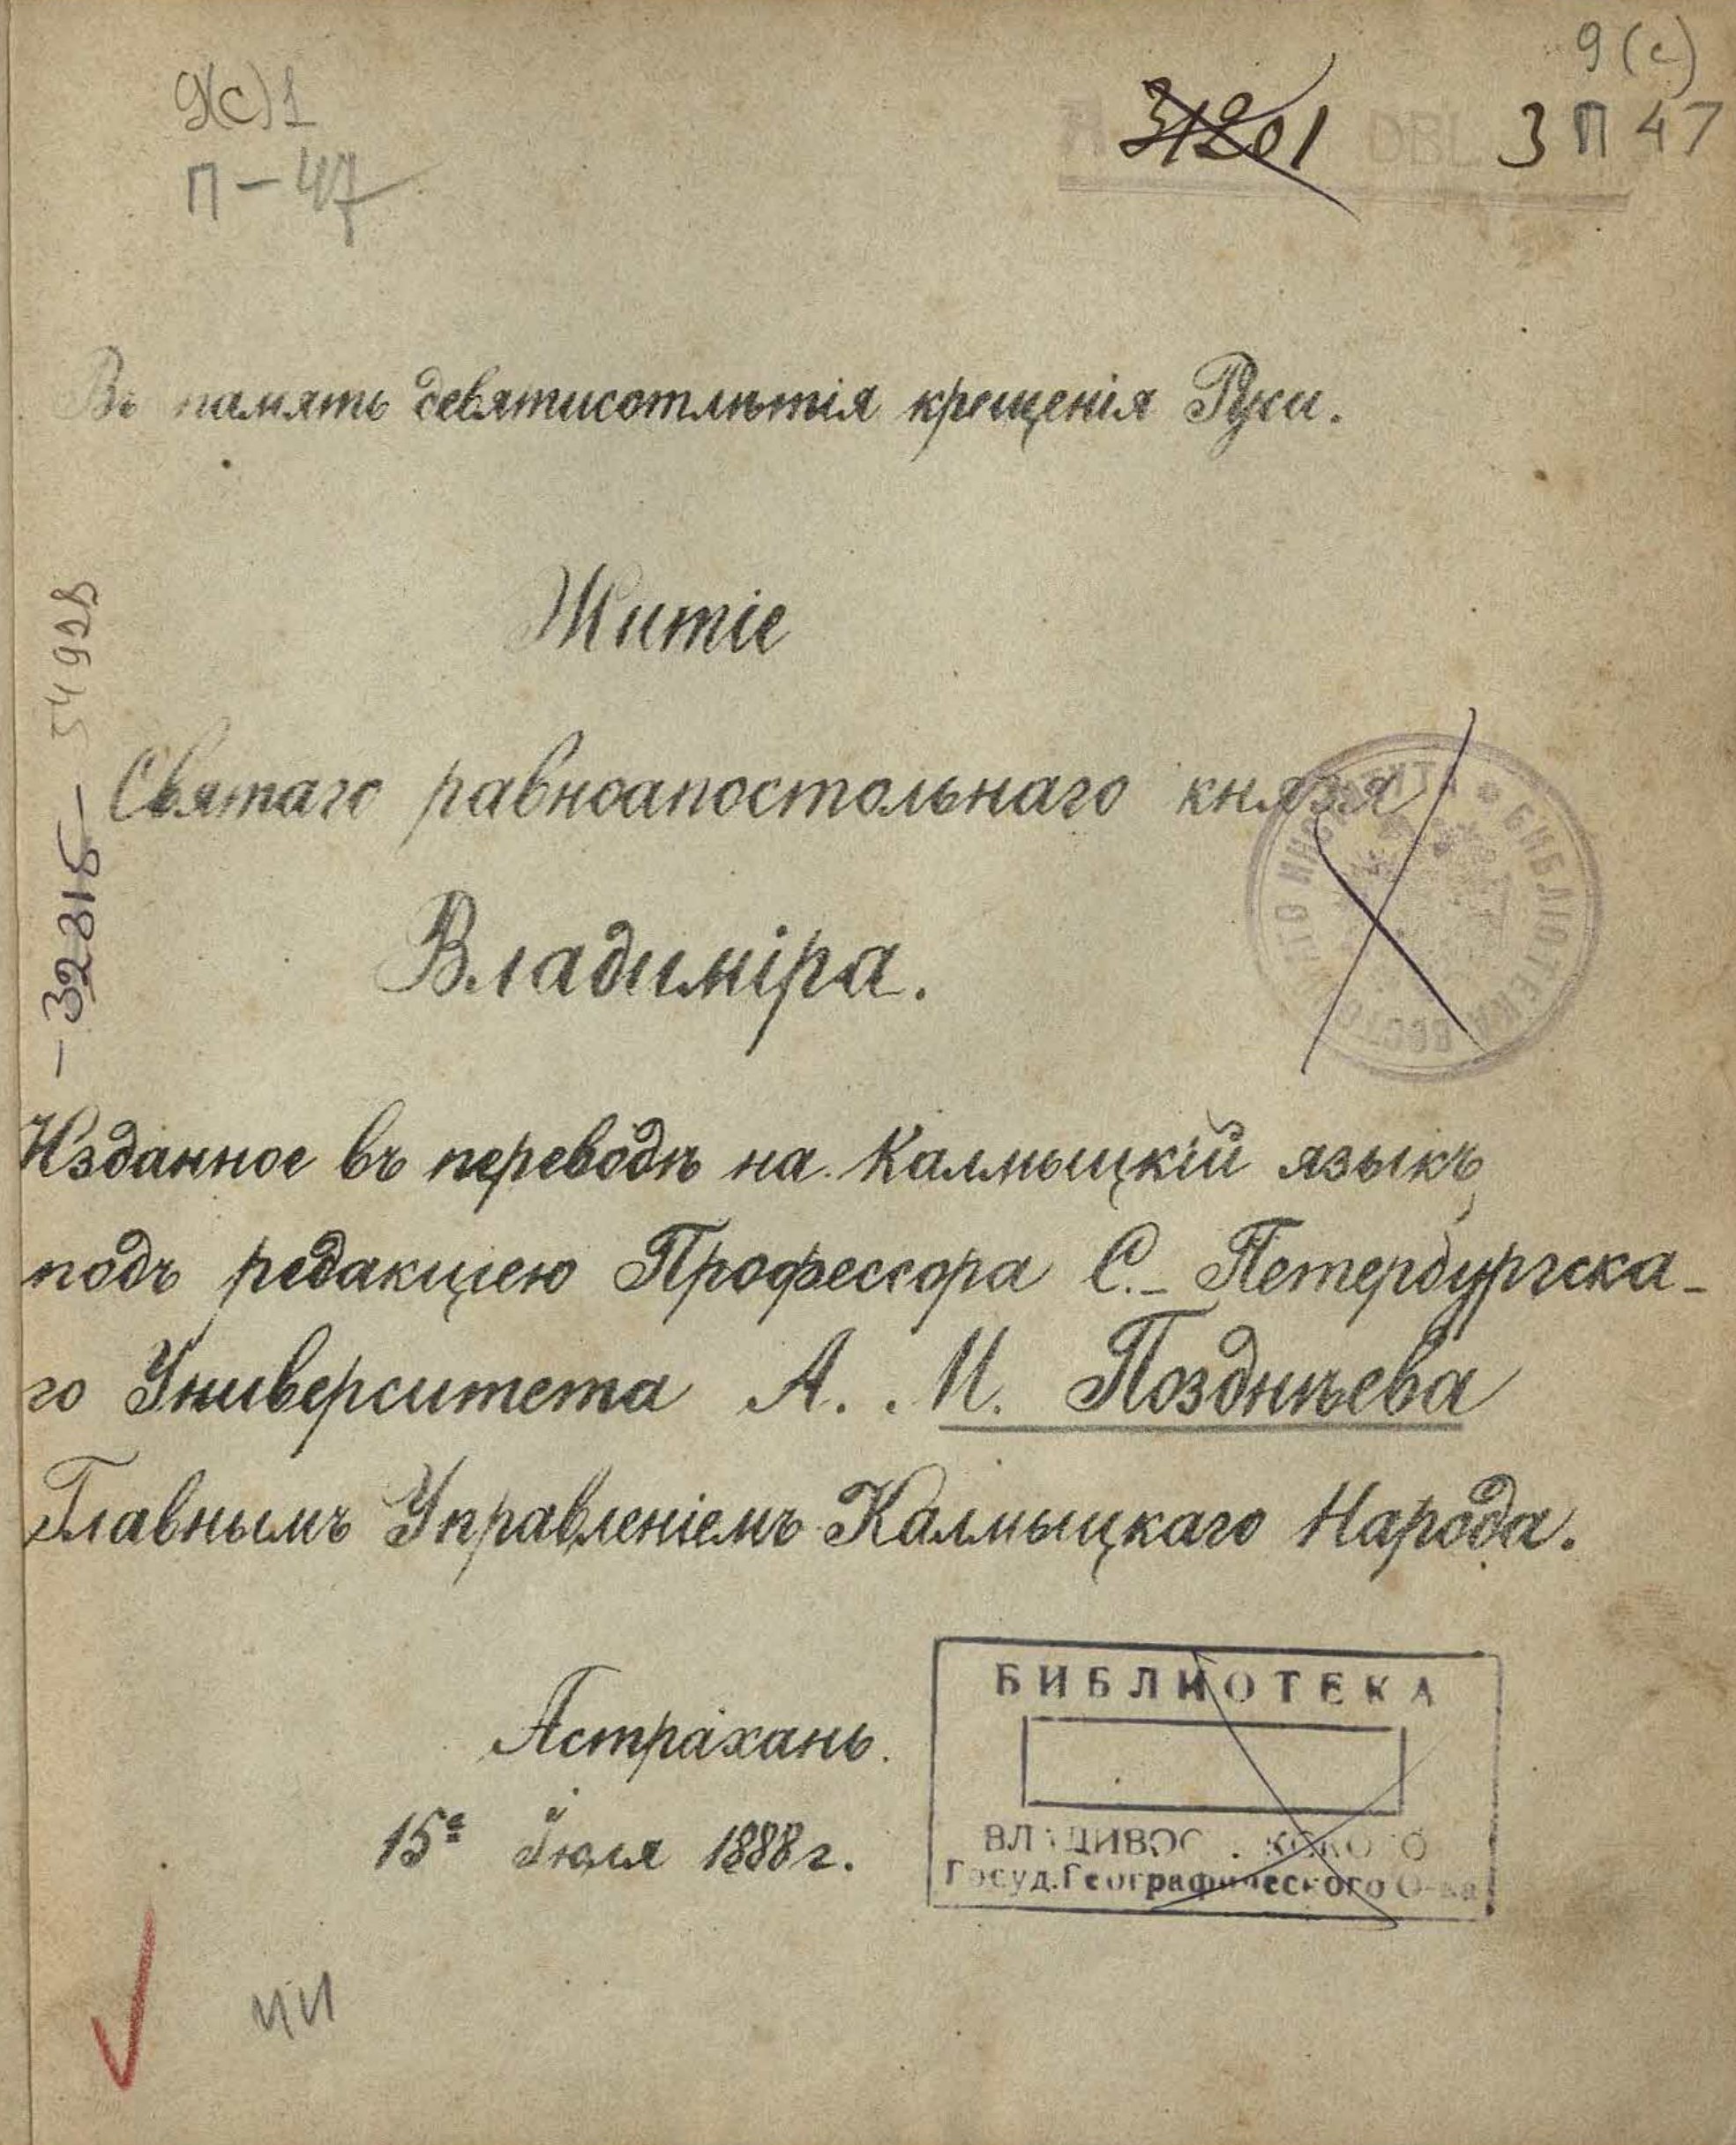 9(с)1
П-47
31201
DBL
9(с)
3 П 47
Въ память девятисотлѣтія крещенія Руси.
Житіе
Святаго равноапостольнаго князя
Владиміра.
Изданное въ переводѣ на Калмыцкій языкъ
подъ редакціею Профессора С.-Петербургска-
го Университета А. М. Позднѣева
Главнымъ Управленіемъ Калмыцкаго Народа.
Астрахань.
15го Іюля 1888 г.
БИБЛІОТЕКА
БИБЛИОТЕКА
Госуд.Географического О-ва
-32315-